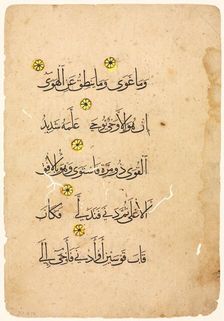 وما غوى وما ينطق عن الهوى
ان هو الا وحي يوحى علمه شديد
القوى ذو مرة فاستوى وهو بالافق
الاعلى ثم دنى فتدلى فكان
قاب قوسين او ادنى فاوحى الى